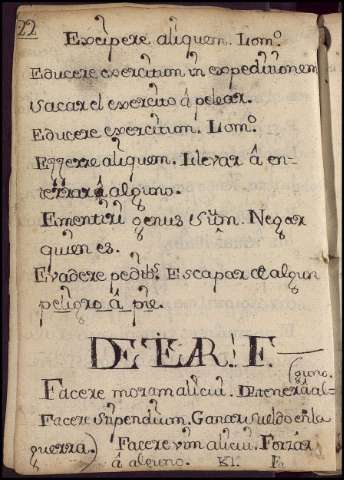 22
Excipere aliquem. Lomº.
Educere exercitum in expeditionem
sacar el exercito á pelear.
Educere exercitum. Lomº.
Efferre aliquem. Llevar á en-
terrar á alguno.
Ementiri genus suum. Negar
quien es.
Evadere pedibs. Escapar de algun
peligro á pie.
DE LAR! F.
Facere moram alicui. Detener á al-
(guno.
Facere stipendium. Ganar sueldo en la
guerra.) Facere vim alicui. Forzar
á alguno. Fa